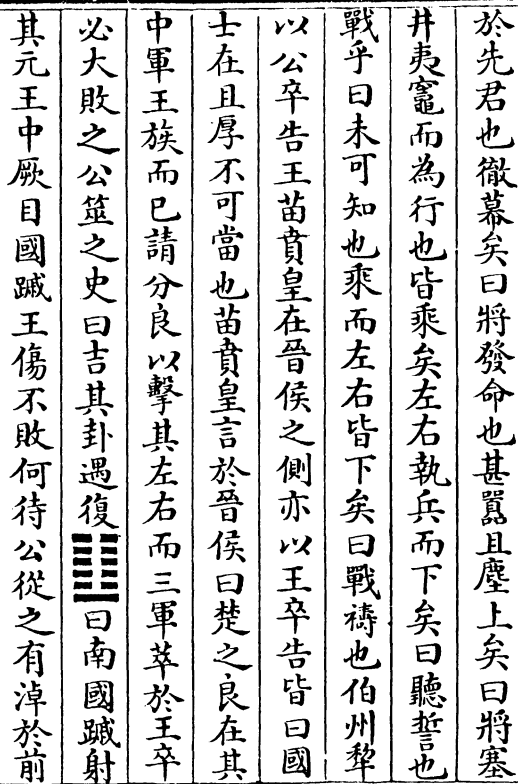 於先君也徹幕矣曰將發命也甚嚻且塵上矣曰將塞
井夷竈而為行也皆乘矣左右執兵而下矣曰聽誓也
戰乎曰未可知也乘而左右皆下矣曰戰禱也伯州犂
以公卒告王苗賁皇在晉侯之側亦以王卒告皆曰國
士在且厚不可當也苗賁皇言於晉侯曰楚之良在其
中軍王族而已請分良以擊其左右而三軍萃於王卒
必大敗之公筮之史曰吉其卦遇復䷗曰南國䠞射
其元王中厥目國䠞王傷不敗何待公從之有淖於前